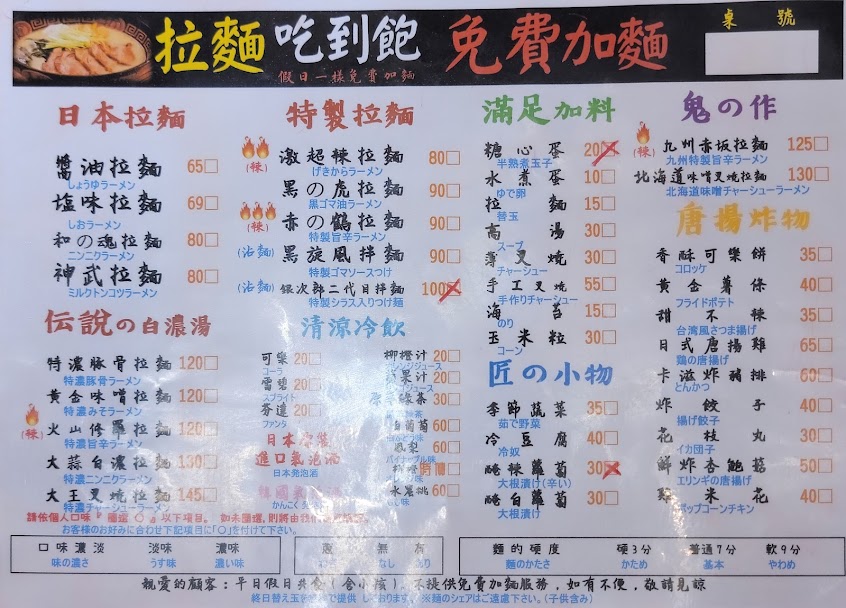 拉麵吃到飽 免費加麵
假日一樣免費加麵
桌號
日本拉麵
醬油拉麵 65
しょうゆラーメン
塩味拉麵 69
しおラーメン
和の魂拉麵 80
ニンニクラーメン
神武拉麵 80
ミルクトンコツラーメン
伝説の白濃湯
特濃豚骨拉麵 120
特濃豚骨ラーメン
黄金味噌拉麵 120
特濃みそラーメン
(辣) 火山修羅拉麵 120
特濃旨辛ラーメン
大蒜白濃拉麵 130
特濃ニンニクラーメン
大王叉燒拉麵 145
特濃チャーシューラーメン
特製拉麵
(辣) 激超辣拉麵 80
げきからラーメン
黒の虎拉麵 90
黒ゴマ油ラーメン
(辣) 赤の鶴拉麵 90
特製旨辛ラーメン
(沾麵) 黑旋風拌麵 90
特製ゴマソースつけ
(沾麵) 銀次郎二代目拌麵 100
特製シラス入りつけ麵
清涼冷飲
可樂 20
コーラ
雪碧 20
スプライト
芬達 20
ファンタ
日本原裝
進口氣泡酒
日本発泡酒
かんこく
柳橙汁 20
果汁 20
綠茶 30
白葡萄 60
鳳梨 60
パイナップル味
水蜜桃 60
滿足加料
糖心蛋 20
半熟煮玉子
水煮蛋 10
ゆで卵
拉麵 15
替玉
高湯 30
スープ
薄叉燒 30
チャーシュー
手工叉燒 55
手作りチャーシュー
海苔 15
のり
玉米粒 30
コーン
匠の小物
季節蔬菜 35
茹で野菜
冷豆腐 40
冷奴
醃辣蘿蔔 30
大根漬け(辛い)
醃白蘿蔔 30
大根漬け
鬼の作
(辣) 九州赤坂拉麵 125
九州特製旨辛ラーメン
北海道味噌叉燒拉麵 130
北海道味噌チャーシューラーメン
唐揚炸物
香酥可樂餅 35
コロッケ
黄金薯條 40
フライドポテト
甜不辣 35
台湾風さつま揚げ
日式唐揚雞 65
鶏の唐揚げ
卡滋炸豬排 60
とんかつ
炸餃子 40
揚げ餃子
花枝丸 30
イカ団子
鮮炸杏鮑菇 50
エリンギの唐揚げ
米花 40
ポップコーンチキン
請依個人口味 圈選 以下項目。 如未圈選,則將由我們
お客様のお好みに合わせ下記項目に「〇」を付けて下さい。
口味濃淡 淡味 濃味
味の濃さ うす味 濃い味
無 有
なし あり
麵的硬度 硬3分 普通7分 軟9分
麵のかたさ かため 基本 やわめ
親愛的顧客：平日假日共食(含小孩)，不提供免費加麵服務，如有不便，敬請見諒
終日替え玉を で提供 しております。 ※麵のシェアはご遠慮下さい。(子供含み)